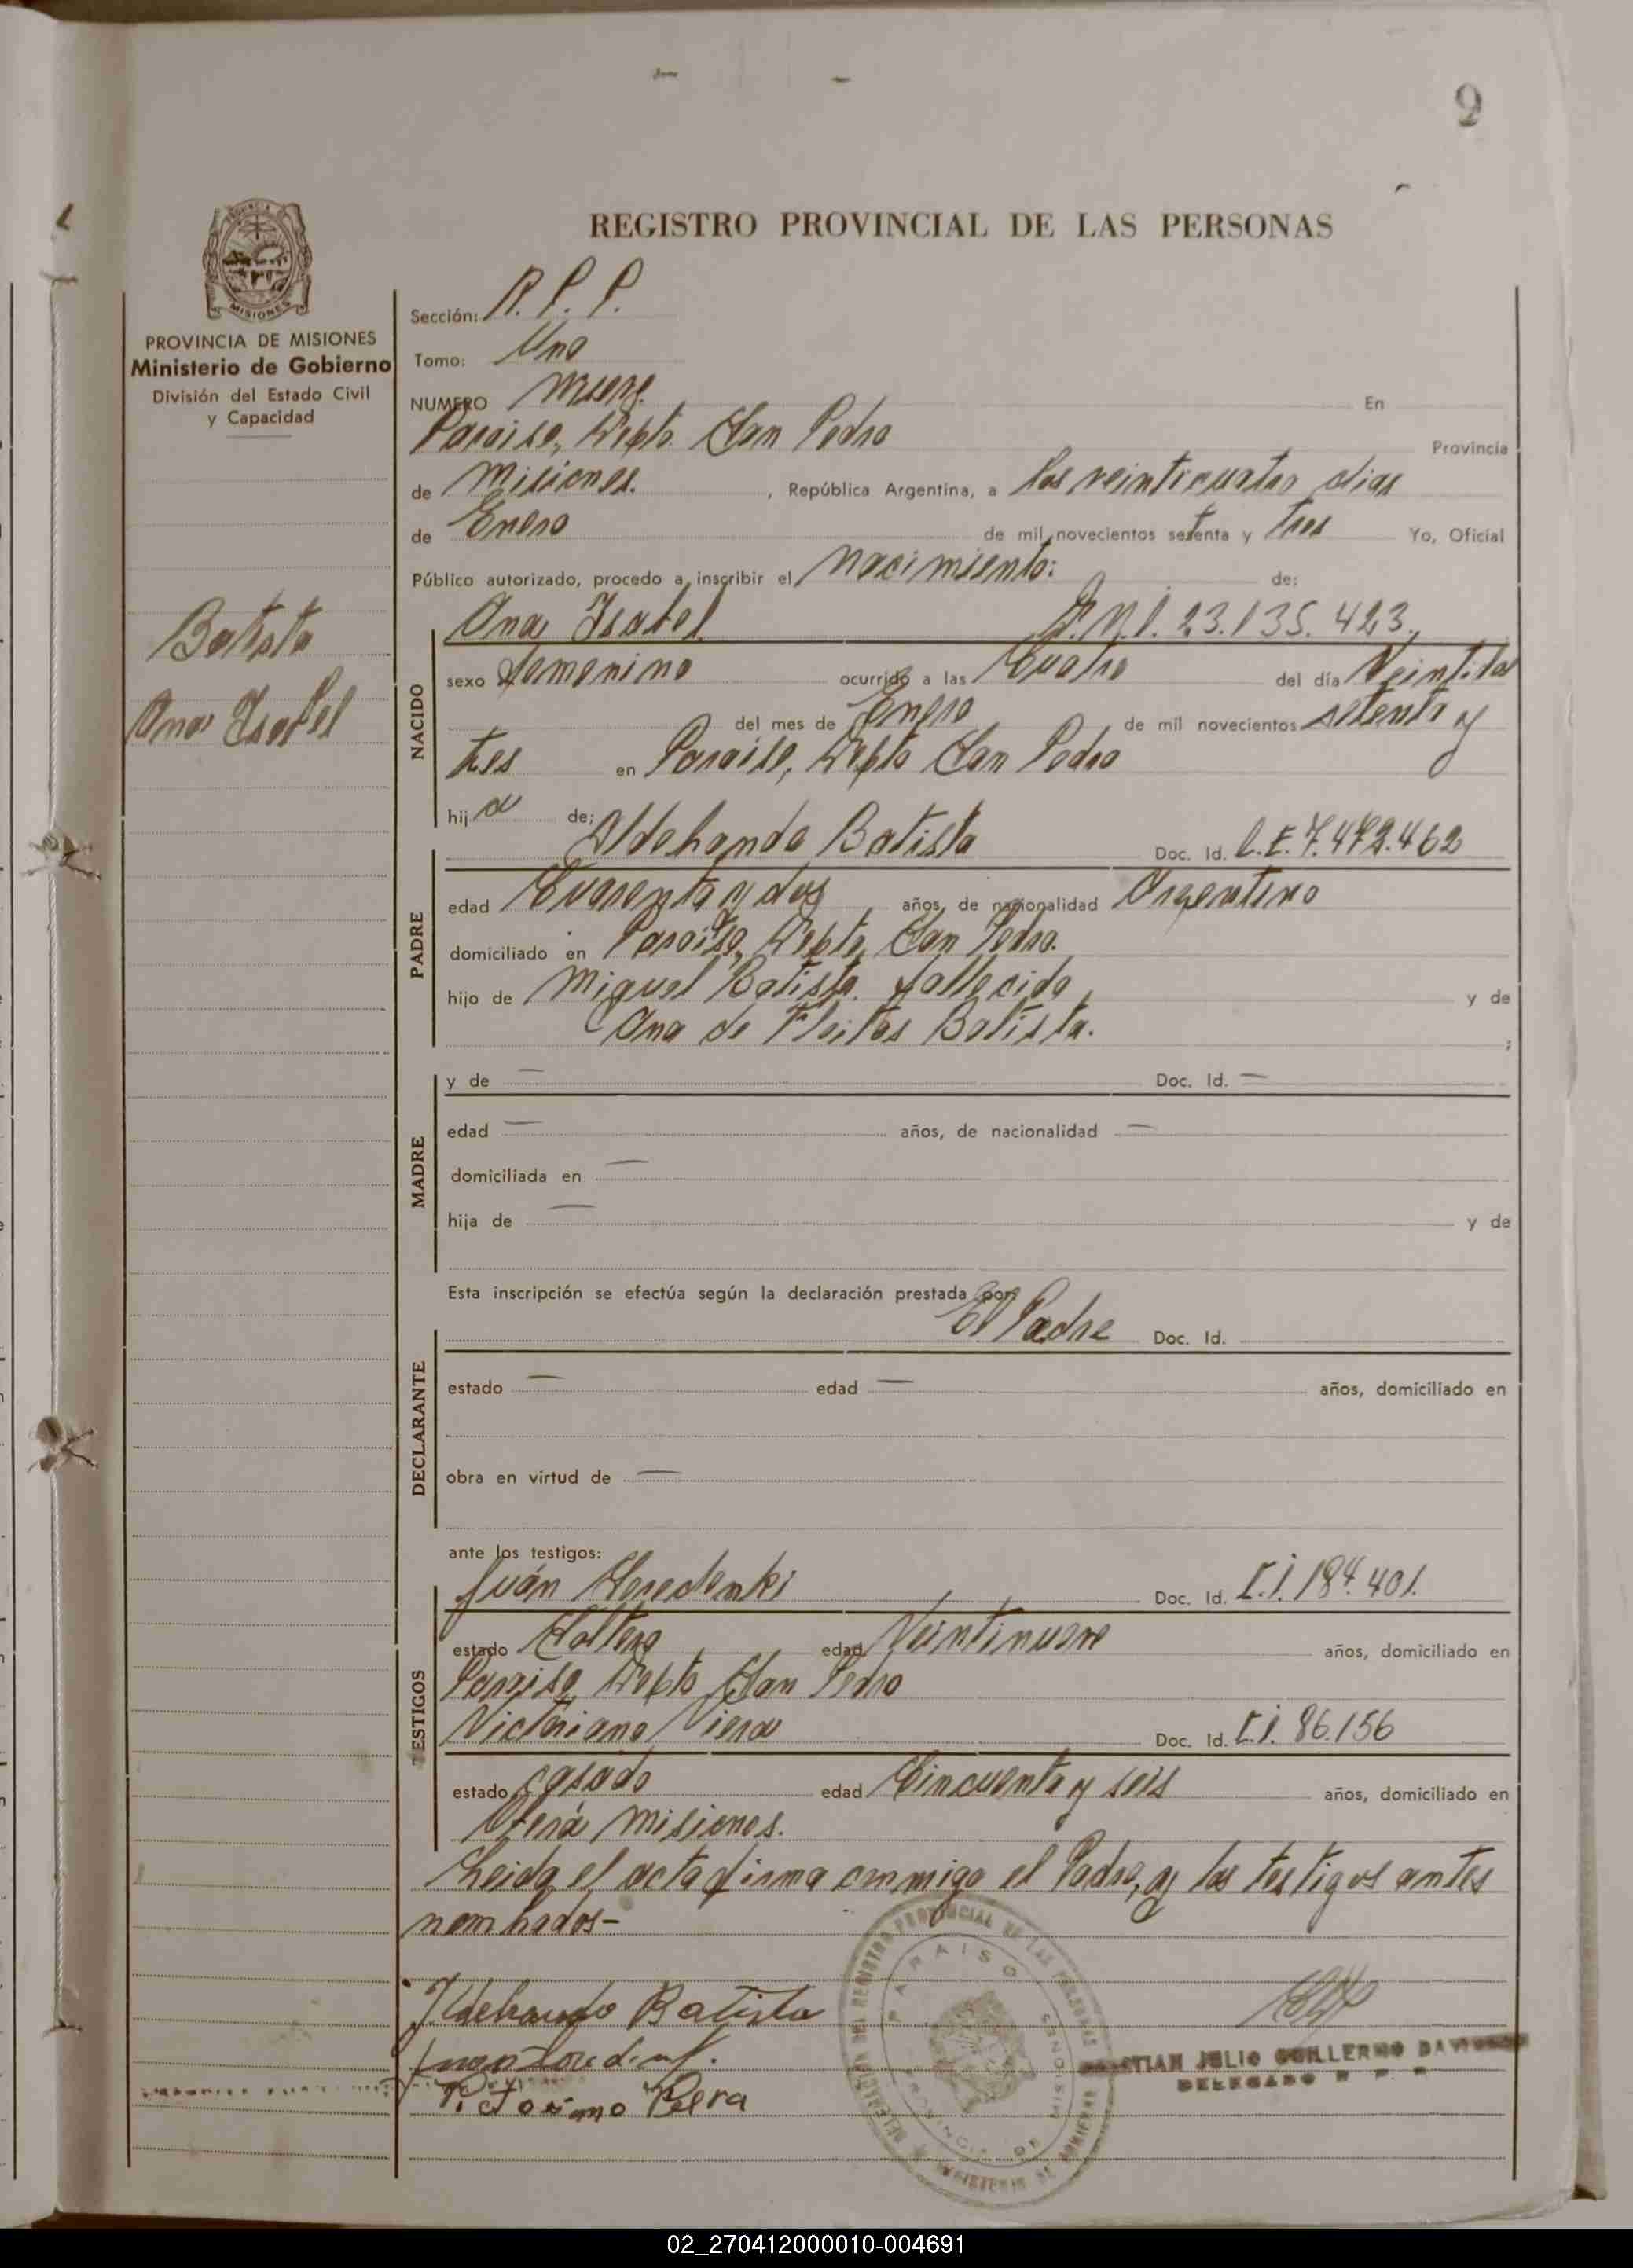 9
REGISTRO PROVINCIAL DE LAS PERSONAS
PROVINCIA DE MISIONES
Ministerio de Gobierno
División del Estado Civil
y Capacidad
Sección: R. P. P.
Tomo: Uno
NUMERO nueve. En
Paraiso, Depto. San Pedro Provincia
de Misiones. , República Argentina, a los veinticuatro dias
de Enero de mil novecientos setenta y tres Yo, Oficial
Público autorizado, procedo a inscribir el nacimiento: de:
Batista
Ana Isabel
NACIDO
Ana Isabel D.N.I. 23.135.423.
sexo femenino ocurrido a las Cuatro del día Veintidos
del mes de Enero de mil novecientos setenta y
tres en Paraiso, Depto San Pedro
hija de:
PADRE
Ildebando Batista Doc. Id. L.E. 7.472.462
edad Cuarenta y dos años, de nacionalidad Argentino
domiciliado en Paraiso, Depto, San Pedro.
hijo de Miguel Batista. fallecido y de
Ana de Fleitas Batista. ;
MADRE
y de — Doc. Id. —
edad — años, de nacionalidad —
domiciliada en —
hija de — y de
Esta inscripción se efectúa según la declaración prestada por
DECLARANTE
El Padre Doc. Id.
estado — edad — años, domiciliado en
obra en virtud de —
ante los testigos:
TESTIGOS
Juán Doc. Id. C.I. 184.401.
estado Soltero edad Veintinueve años, domiciliado en
Paraiso Depto San Pedro
Victoriano Viera Doc. Id. C.I. 86.156
estado casado edad Cincuenta y seis años, domiciliado en
Oberá Misiones.
Leida el acta firma conmigo el Padre, y los testigos antes
nombrados-
Ildebrando Batista
Victoriano
DELEGACION DEL REGISTRO PROVINCIAL DE LAS PERSONAS
PARAISO
PROVINCIA DE MISIONES
JULIO GUILLERMO
DELEGADO R P P
02_270412000010-004691